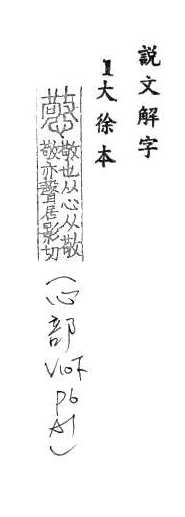 説文解字
1大徐本
憼 敬也从心从敬
敬亦聲居影切
(心部
V10下
p6
A1)